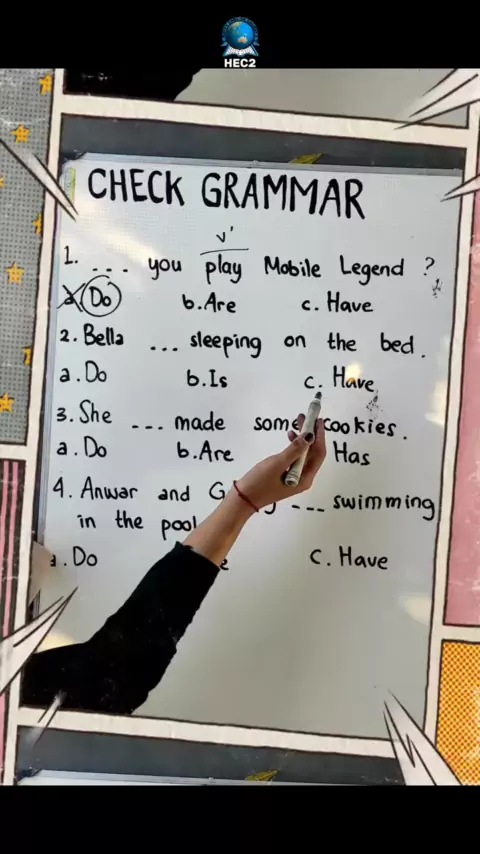 HEC2
CHECK GRAMMAR
v'
1. ... you play Mobile Legend ?
a. Do b. Are c. Have
2. Bella ... sleeping on the bed.
a. Do b. Is c. Have
3. She ... made some cookies.
a. Do b. Are Has
4. Anwar and ... swimming
in the pool
a. Do c. Have